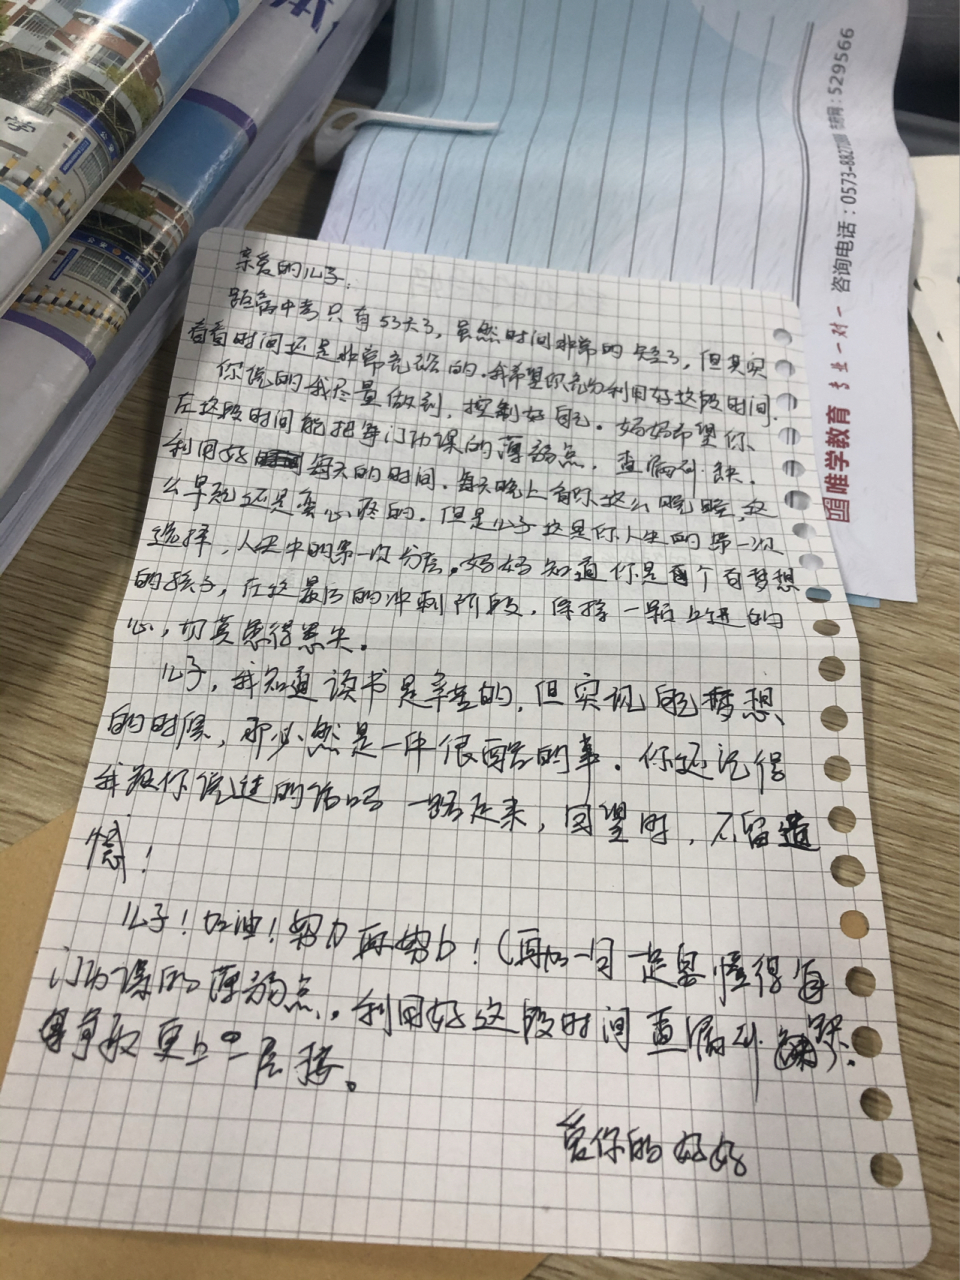 亲爱的儿子:
距离中考只有53天了,虽然时间非常的短了,但其实
看看时间还是非常充裕的.我希望你充分利用好这段时间.
你说的我尽量做到,控制好自己.妈妈希望你
在这段时间能把每门功课的薄弱点.查漏补缺.
利用好每天的时间.每天晚上看你这么晚睡,这
么早起还是蛮心疼的.但是儿子这是你人生的第一次
选择,人生中的第一次分层.妈妈知道你是个有梦想
的孩子,在这最后的冲刺阶段,保持一颗上进的
心,切莫患得患失.
儿子,我知道读书是辛苦的,但实现自己梦想
的时候,那必然是一件很酷的事.你还记得
我跟你说过的话吗 一路走来,回望时,不留遗
憾!
儿子!加油!努力再努力!(再加一句 一定要懂得每
门功课的薄弱点..利用好这段时间查漏补缺.
争取更上一层楼。
爱你的妈妈
唯学教育 专业一对一 咨询电话:0573-8827
529566
学
公安